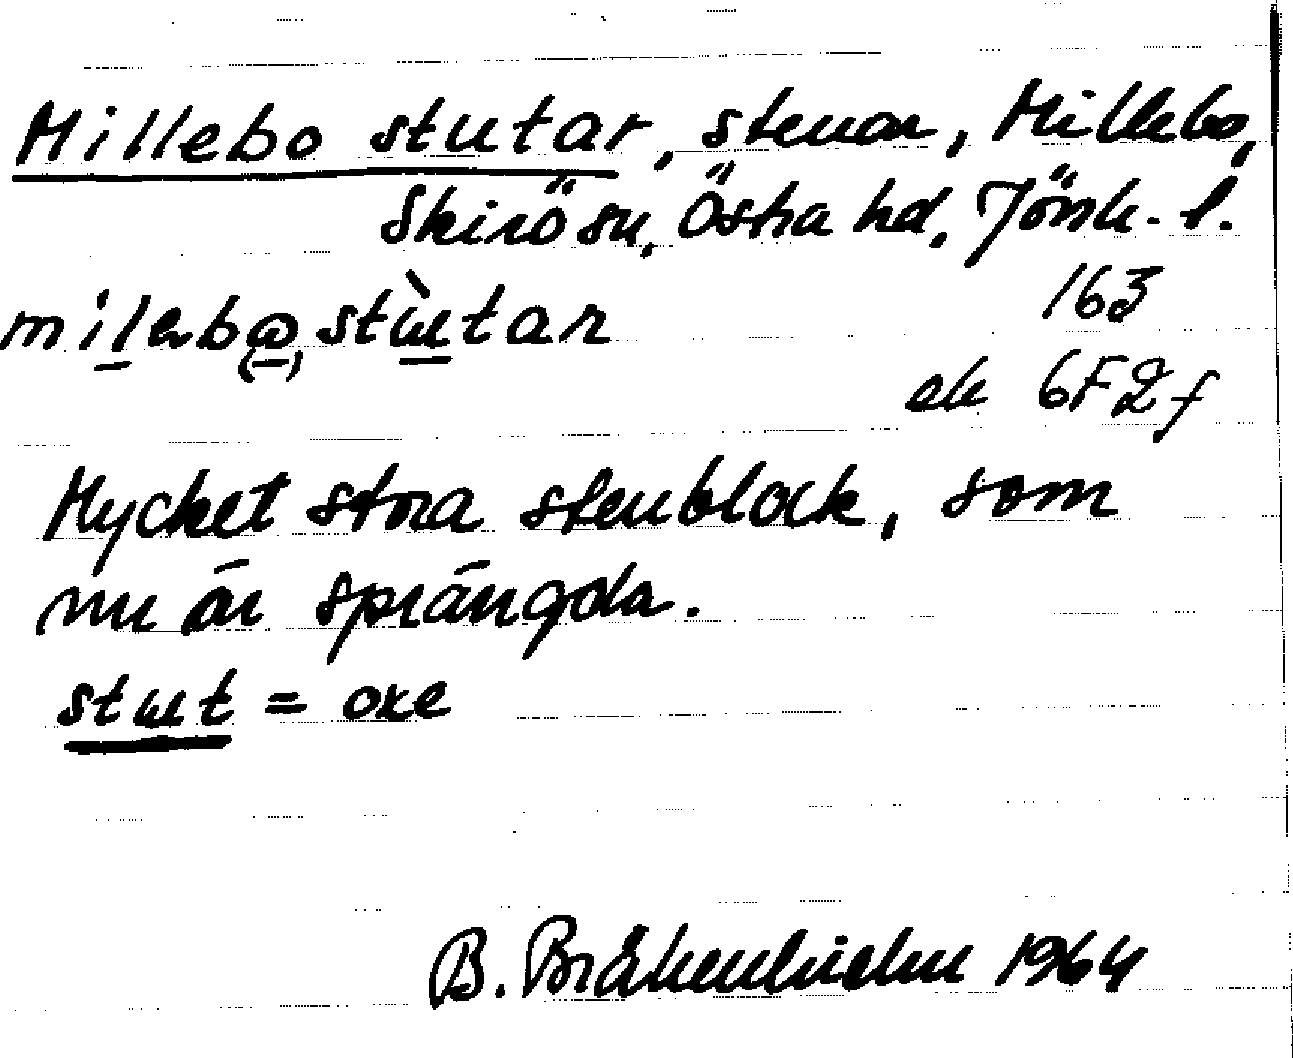 Millebo stutar, stenar, Millebo,
Skirö sn, Östra hd, Jönk. l.
163
ek 6F2f
Mycket stora stenblock, som
nu är sprängda.
stut = oxe
B. Bråkenhielm 1964